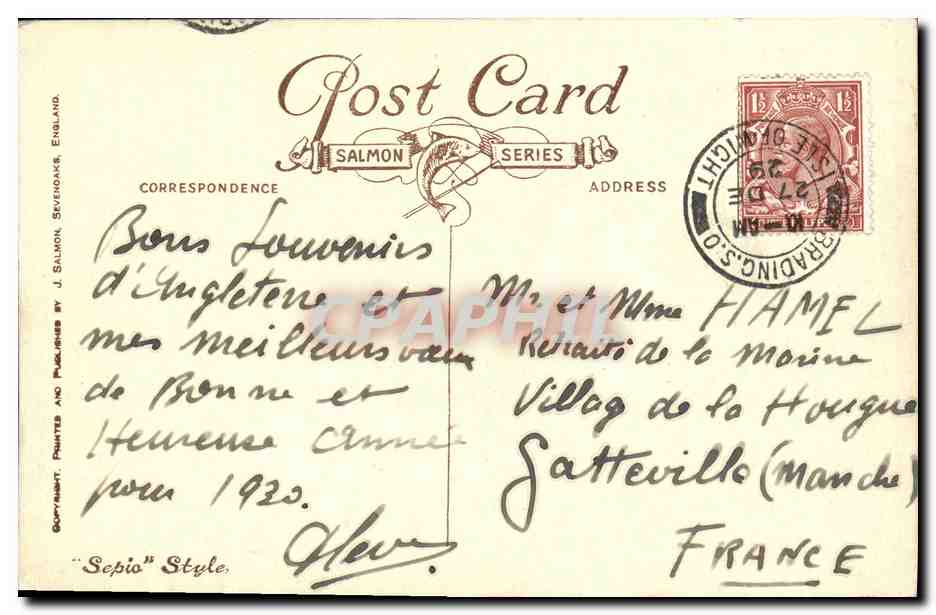 Post Card
SALMON SERIES
CORRESPONDENCE
ADDRESS
1½ 1½
BRADING.S.O
ISLE OF WIGHT
10 AM
27 DE
29
COPYRIGHT. PRINTED AND PUBLISHED BY J. SALMON, SEVENOAKS, ENGLAND.
Bons Souvenirs
d'Angleterre et
mes meilleurs vœux
de Bonne et
Heureuse Année
pour 1930.
Mr et Mme HAMEL
Retraité de la Marine
Village de la Hougue
Gatteville (Manche)
FRANCE
"Sepio" Style.
CPAPHIL